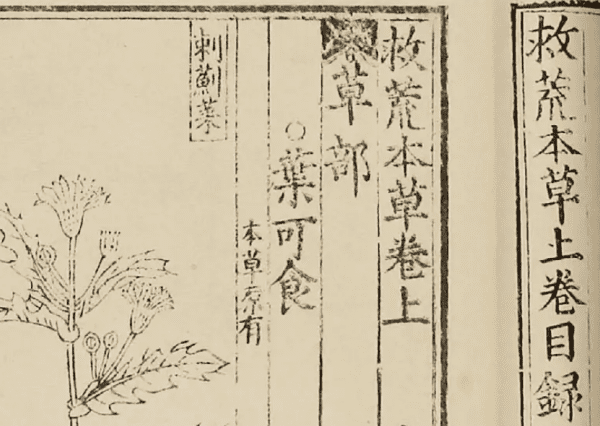 救荒本草上卷目錄
救荒本草卷上
草部
葉可食
本草原有
刺薊菜